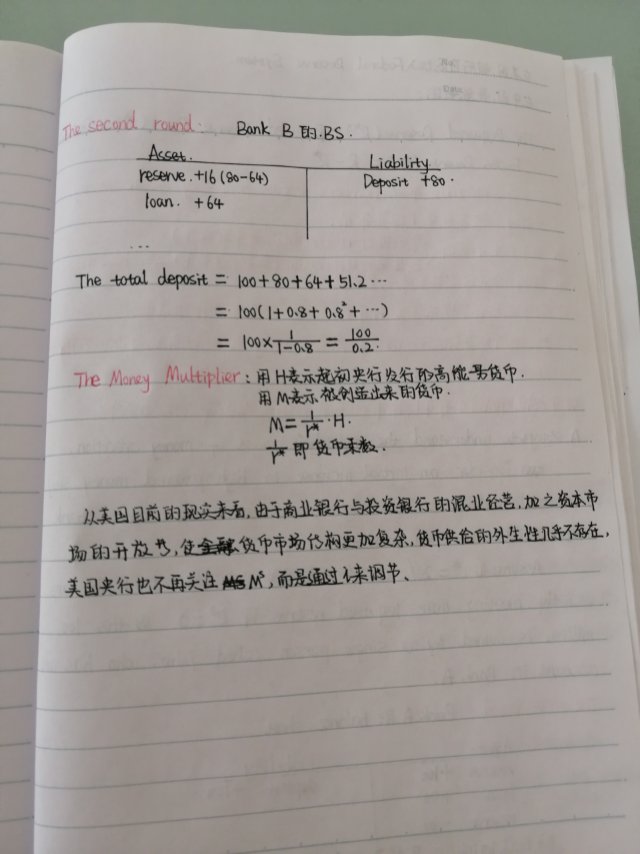 The second round: Bank B 的.BS.
Asset. Liability
reserve. +16 (80-64) Deposit +80.
loan. +64
...
The total deposit = 100+80+64+51.2 ...
= 100(1+0.8+0.8²+ ...)
= 100× 1/(1-0.8) = 100/0.2.
The Money Multiplier: 用H表示起初央行发行的高能货币.
用M表示被创造出来的货币.
M = 1/r* · H.
1/r* 即货币乘数.
从美国目前的现实来看,由于商业银行与投资银行的混业经营,加之资本市
场的开放性,使货币市场结构更加复杂,货币供给的外生性几乎不存在,
美国央行也不再关注 Mˢ,而是通过i来调节、